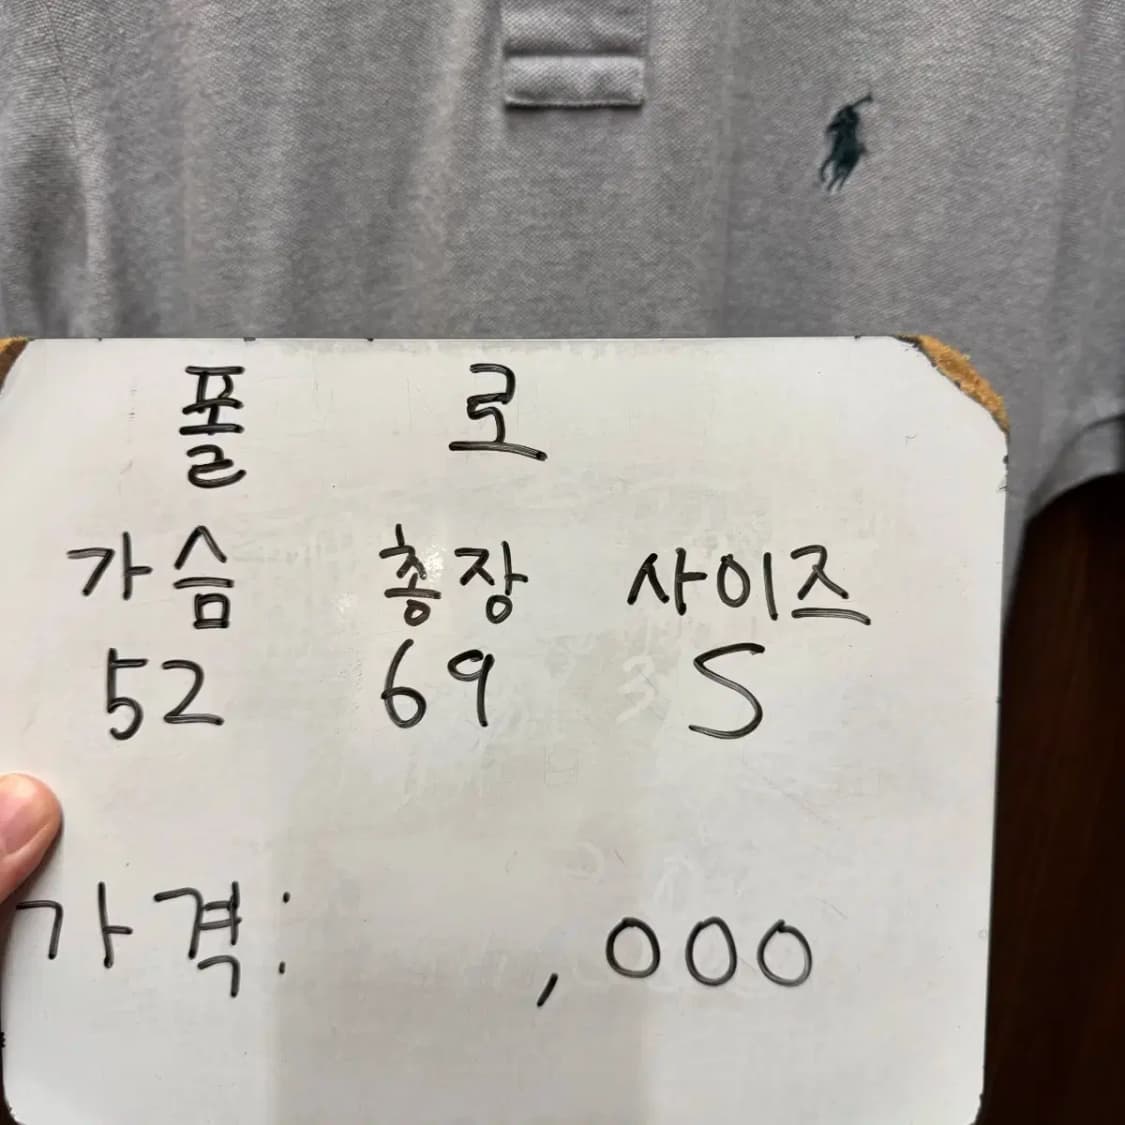 폴로
가슴 총장 사이즈
52 69 S
가격: ,000